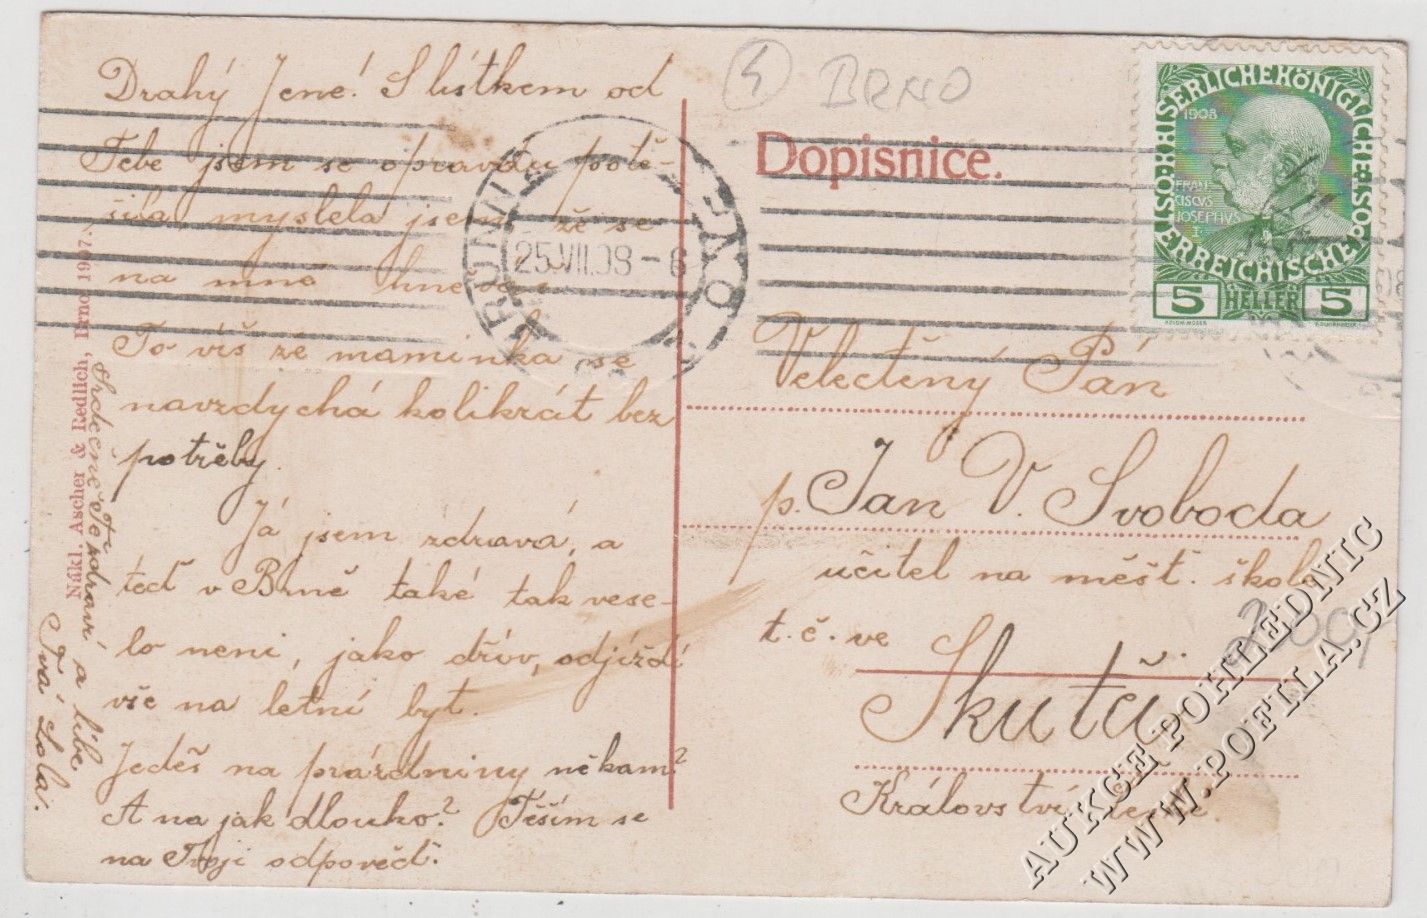 Drahý Jené! S lístkem od
Tebe jsem se opravdu potě-
šila, myslela jsem že se
na mně hněváš
To víš že maminka se
navzdychá kolikrát bez
potřeby.
Já jsem zdravá, a
teď v Brně také tak vese-
lo neni, jako dřív, odjíždí
vše na letní byt.
Jedéš na prázdniny někam?
A na jak dlouho? Těším se
na Tvoji odpověď.
Srdečně Te zdraví a líbe
Tvá Lola.
Nákl. Ascher & Redlich, Brno 1907.
4 BRNO
Dopisnice.
BRÜNN
BRNO
25.VII.08-6
KAISERLICHE KÖNIGLICHE
ÖSTERREICHISCHE POST
1908
FRAN
CISCVS
JOSEPHVS
I
5 HELLER 5
Velectěný Pán
p. Jan V. Svoboda
učitel na měšt. škole
t. č. ve
Skutči
Království
AUKCE POHLEDNIC
WWW.POFILA.CZ